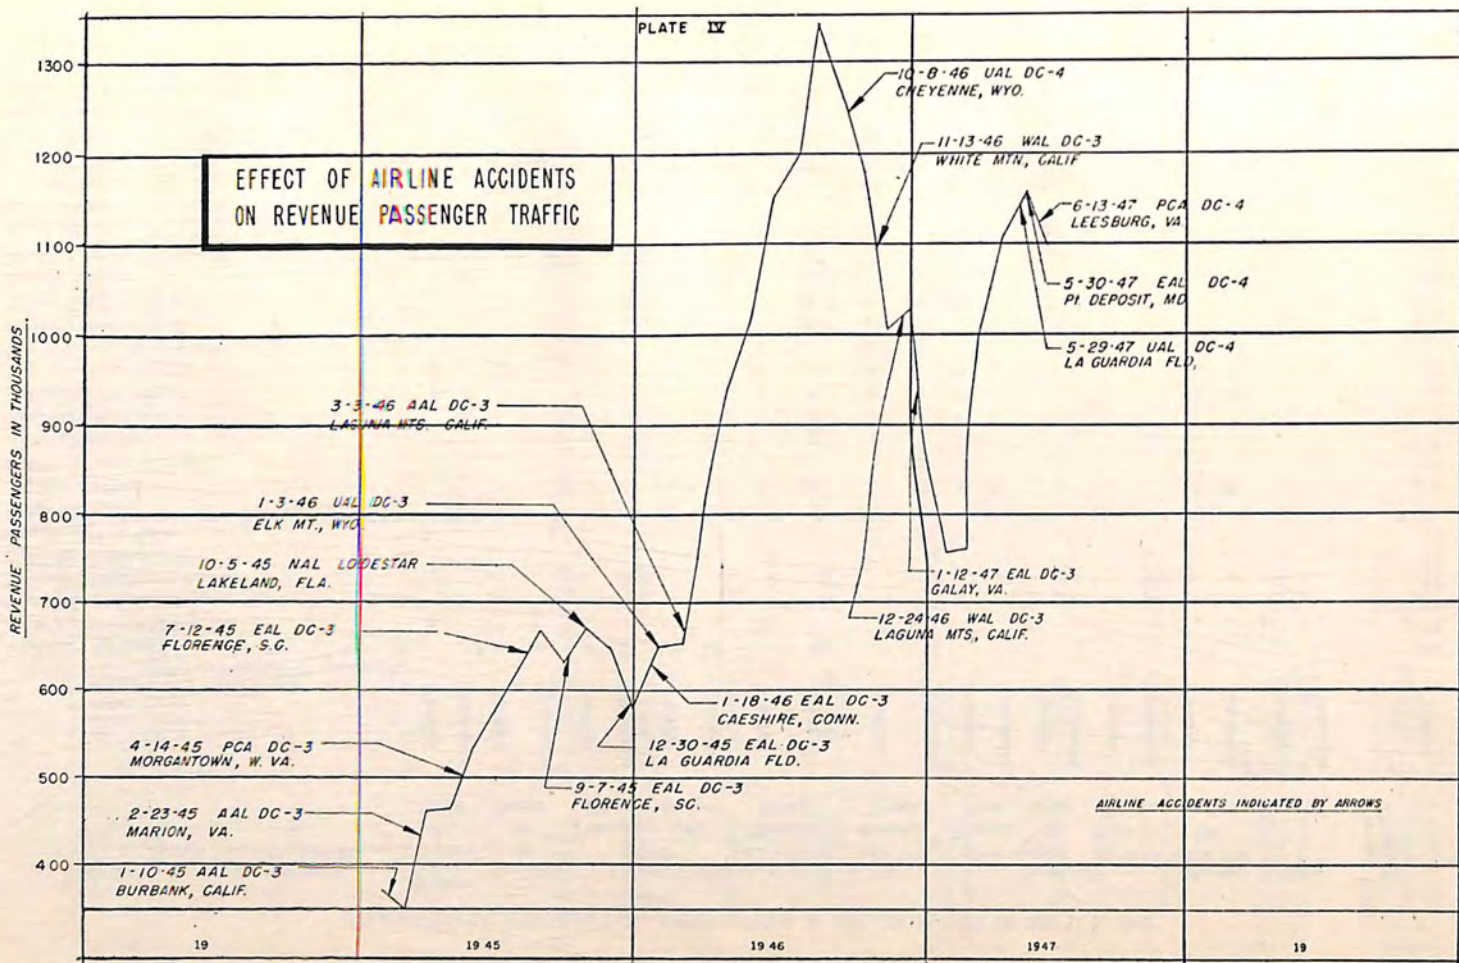 PLATE IV
EFFECT OF AIRLINE ACCIDENTS
ON REVENUE PASSENGER TRAFFIC
REVENUE PASSENGERS IN THOUSANDS.
1300
1200
1100
1000
900
800
700
600
500
400
10-8-46 UAL DC-4
CHEYENNE, WYO.
11-13-46 WAL DC-3
WHITE MTN, CALIF
6-13-47 PCA DC-4
LEESBURG, VA.
5-30-47 EAL DC-4
Pt. DEPOSIT, MD
5-29-47 UAL DC-4
LA GUARDIA FLD,
3-3-46 AAL DC-3
LAGUNA MTS. CALIF.
1-3-46 UAL DC-3
ELK MT., WYO.
10-5-45 NAL LODESTAR
LAKELAND, FLA.
7-12-45 EAL DC-3
FLORENCE, S.C.
1-12-47 EAL DC-3
GALAY, VA.
12-24-46 WAL DC-3
LAGUNA MTS, CALIF.
1-18-46 EAL DC-3
CAESHIRE, CONN.
12-30-45 EAL DC-3
LA GUARDIA FLD.
4-14-45 PCA DC-3
MORGANTOWN, W. VA.
9-7-45 EAL DC-3
FLORENCE, SC.
2-23-45 AAL DC-3
MARION, VA.
1-10-45 AAL DC-3
BURBANK, CALIF.
AIRLINE ACCIDENTS INDICATED BY ARROWS
19
1945
1946
1947
19